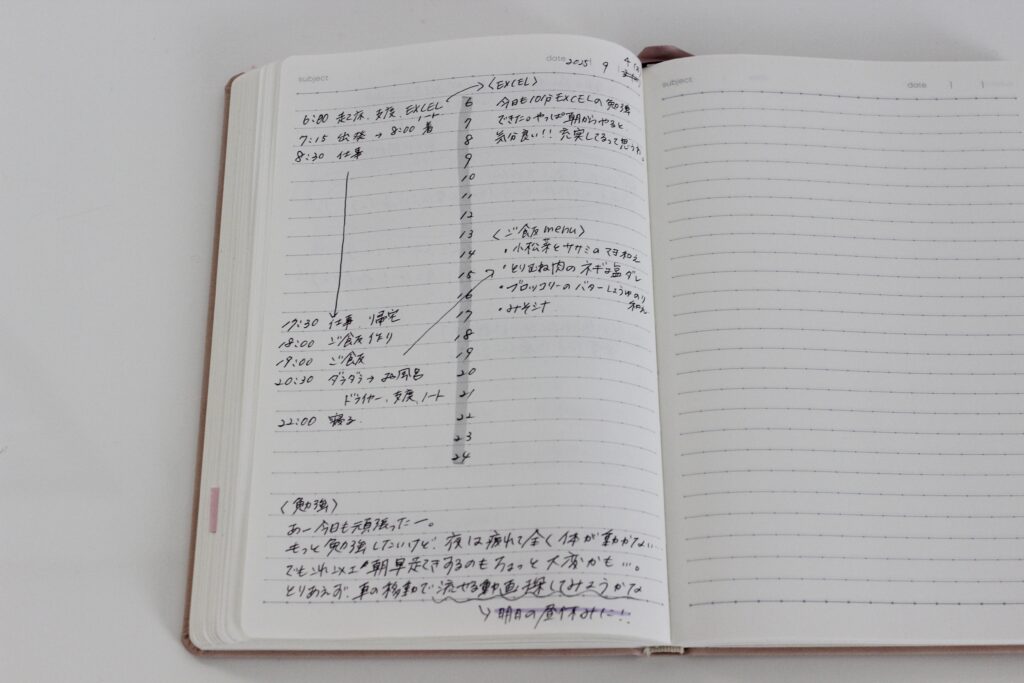 subject
date 2025 9 4
6:00 起床、支度、EXCEL
ノート
7:15 出発→8:00 着
8:30 仕事
17:30 仕事、帰宅
18:00 ご飯作り
19:00 ご飯
20:30 ダラダラ→お風呂
ドライヤー、支度、ノート
22:00 寝る
6
7
8
9
10
11
12
13
14
15
16
17
18
19
20
21
22
23
24
〈EXCEL〉
今日も10分EXCELの勉強
できた。やっぱ朝からやると
気分良い!! 充実してるって思うわ。
〈ご飯menu〉
・小松菜とササミのマヨ和え
・とりむね肉のネギ塩ダレ
・ブロッコリーのバターしょうゆのり
和え
・みそ汁
〈勉強〉
あー今日も頑張ったー。
もっと勉強したいけど、夜は疲れて全く体が動かない…
でもこれ以上朝早起きするのもちょっと大変かも…。
とりあえず、車の移動で流せる動画探してみようかな
↳明日の昼休みに!!
subject
date